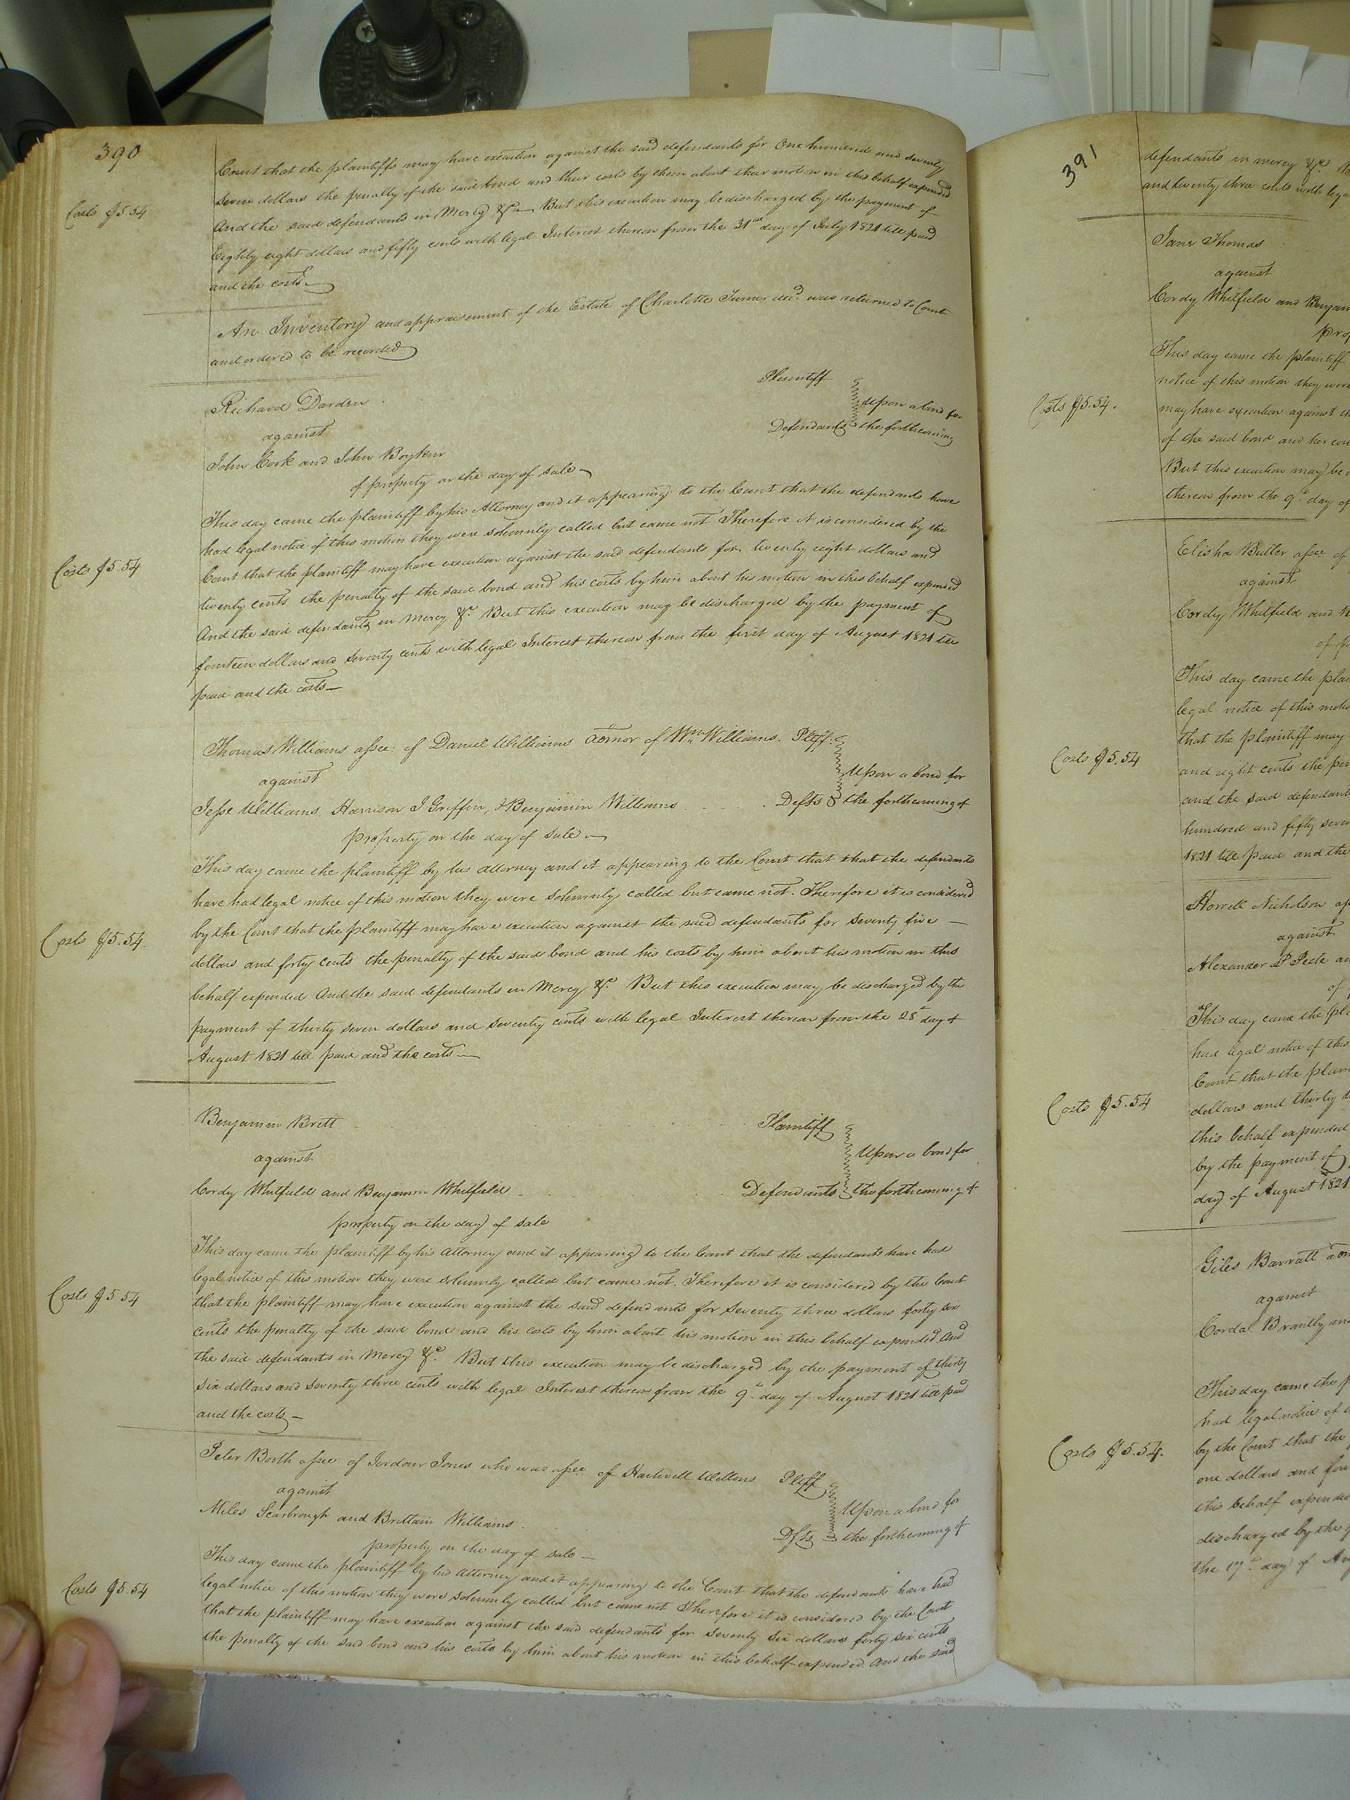 390
Court that the plaintiffs may have execution against the said defendants for One hundred and seventy
Costs $5.54
Seven dollars the penalty of the said bond and their costs by them about their motion in this behalf expended
And the said defendants in Mercy &c. But this execution may be discharged by the payment of
Eighty eight dollars and fifty cents with legal Interest thereon from the 31st day of July 1821 till paid
and the costs
An Inventory and appraisement of the Estate of Charlotte Turner decd was returned to Court
and ordered to be recorded
Richard Darden Plaintiff
against Upon a bond for
John Cork and John Boykin Defendants the forthcoming
of property on the day of sale
This day came the plaintiff by his Attorney and it appearing to the Court that the defendants have
had legal notice of this motion they were solemnly called but came not Therefore it is considered by the
Costs $5.54
Court that the plaintiff may have execution against the said defendants for twenty eight dollars and
twenty cents the penalty of the said bond and his costs by him about his motion in this behalf expended
And the said defendants in Mercy &c. But this execution may be discharged by the payment of
fourteen dollars and seventy cents with legal Interest thereon from the first day of August 1821 till
paid and the costs
Thomas Williams assee of Daniel Williams admor of Wm Williams. Pltff
against Upon a bond for
Jesse Williams Harrison J Griffin, & Benjamin Williams Defts the forthcoming of
property on the day of sale
This day came the plaintiff by his attorney and it appearing to the Court that that the defendants
have had legal notice of this motion they were solemnly called but came not. Therefore it is considered
by the Court that the plaintiff may have execution against the said defendants for seventy five
Costs $5.54
dollars and forty cents the penalty of the said bond and his costs by him about his motion in this
behalf expended And the said defendants in Mercy &c. But this execution may be discharged by the
payment of thirty seven dollars and seventy cents with legal Interest thereon from the 28th day of
August 1821 till paid and the costs
Benjamin Britt Plaintiff
against Upon a bond for
Cordy Whitfield and Benjamin Whitfield Defendants the forthcoming of
property on the day of sale
This day came the plaintiff by his attorney and it appearing to the Court that the defendants have had
legal notice of this motion they were solemnly called but came not. Therefore it is considered by the Court
Costs $5.54
that the plaintiff may have execution against the said defendants for seventy three dollars forty six
cents the penalty of the said bond and his costs by him about his motion in this behalf expended And
the said defendants in Mercy &c. But this execution may be discharged by the payment of thirty
six dollars and seventy three cents with legal Interest thereon from the 9th day of August 1821 till paid
and the costs
Peter Booth assee of Jordan Jones who was assee of Hartwell Pltff
against Upon a bond for
Miles Scarbrough and Brittain Williams. Dfts the forthcoming of
property on the day of sale
This day came the plaintiff by his Attorney and it appearing to the Court that the defendants have had
legal notice of this motion they were solemnly called but came not Therefore it is considered by the Court
Costs $5.54
that the plaintiff may have execution against the said defendants for seventy six dollars forty six cents
the penalty of the said bond and his costs by him about his motion in this behalf expended And the said
391
defendants in mercy &c
and twenty three cents with legal
Jane Thomas
against
Cordy Whitfield and Benjamin
This day came the plaintiff
notice of this motion they were
Costs $5.54.
may have execution against the
of the said bond and her
But this execution may be
thereon from the 9th day of
Elisha Butler assee of
against
Cordy Whitfield and
This day came the
legal notice of this
Costs $5.54
that the plaintiff may
and eight cents the
and the said defendants
hundred and fifty seven
1821 till paid and the
Nicholson
against
Alexander P Pete
of
This day came the
had legal notice of this
Court that the
Costs $5.54
dollars and thirty
this behalf expended
by the payment of
day of August 1821
Giles Barratt
against
Cordal Brantly
This day came the
had legal notice of
Costs $5.54.
by the Court that the
one dollars and
this behalf expended
discharged by the
the 17th day of